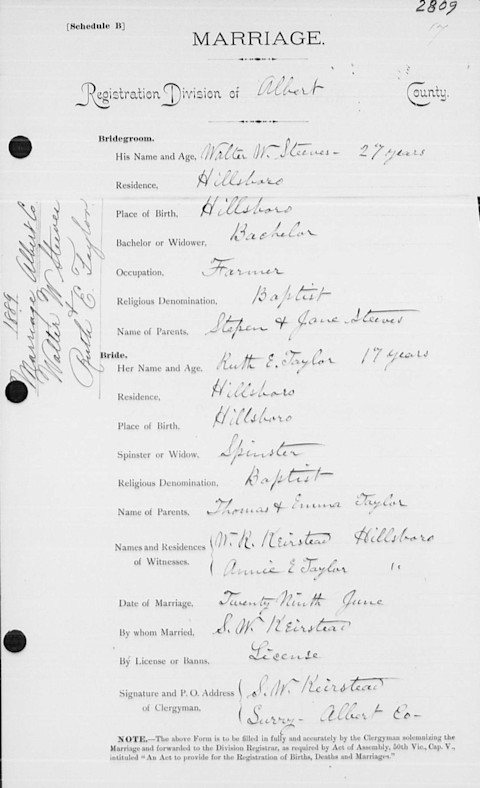 2809
17
[Schedule B]
MARRIAGE.
Registration Division of Albert County.
Bridegroom.
His Name and Age, Walter W. Steeves - 27 years
Residence, Hillsboro
Place of Birth, Hillsboro
Bachelor or Widower, Bachelor
Occupation, Farmer
Religious Denomination, Baptist
Name of Parents, Stepen & Jane Steeves
Bride.
Her Name and Age, Ruth E. Taylor 17 years
Residence, Hillsboro
Place of Birth, Hillsboro
Spinster or Widow, Spinster
Religious Denomination, Baptist
Name of Parents, Thomas & Emma Taylor
Names and Residences of Witnesses. W. K. Keirstead Hillsboro
Annie E Taylor "
Date of Marriage, Twenty Ninth June
By whom Married, S. W. Keirstead
By License or Banns, License
Signature and P. O. Address of Clergyman, S. W. Keirstead
Surry - Albert Co -
NOTE.—The above Form is to be filled in fully and accurately by the Clergyman solemnizing the
Marriage and forwarded to the Division Registrar, as required by Act of Assembly, 50th Vic., Cap. V.,
intituled "An Act to provide for the Registration of Births, Deaths and Marriages."
1889
Marriage Albert Co
Walter W Steeves
&
Ruth E. Taylor